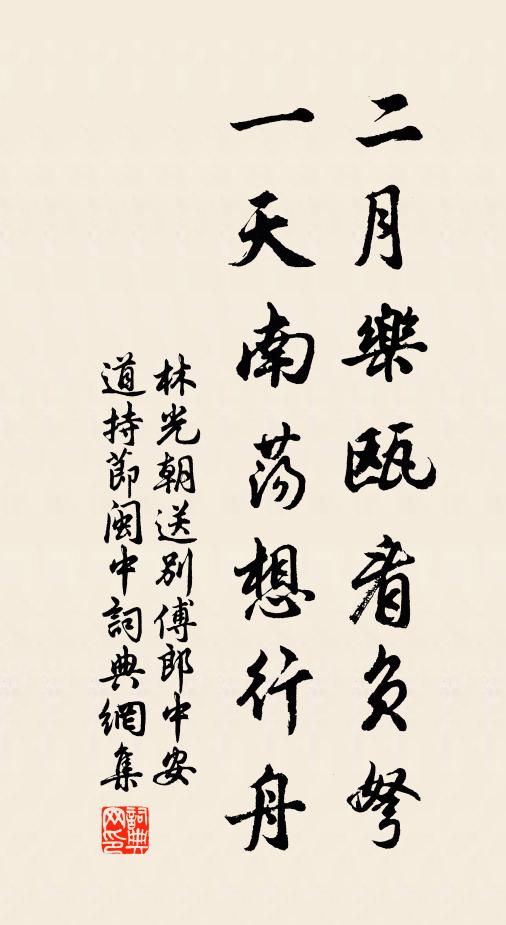 二月樂甌看負弩
一天南蕩想行舟
林光朝送別傅郎中安
道持節閩中詞典網集
詞典
网印